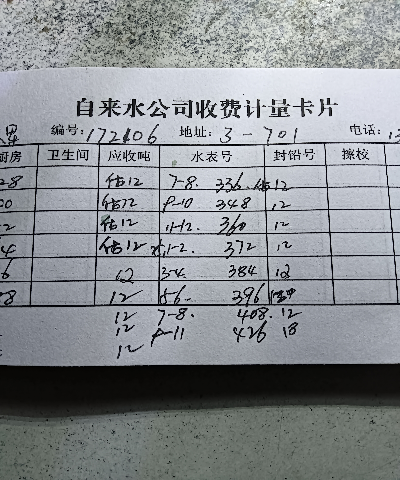 自来水公司收费计量卡片
编号: 172106 地址: 3-701 电话: 13
厨房 卫生间 应收吨 水表号 封铅号 擦校
-8 估12 7-8. 336. 估12
0 估12 9-10 348 12
2 估12 11-12 360 12
4 估12 1-2 372 12
6 12 3-4 384 12
8 12 5-6- 396
12 7-8. 408. 12
12 9-11 426 18
12